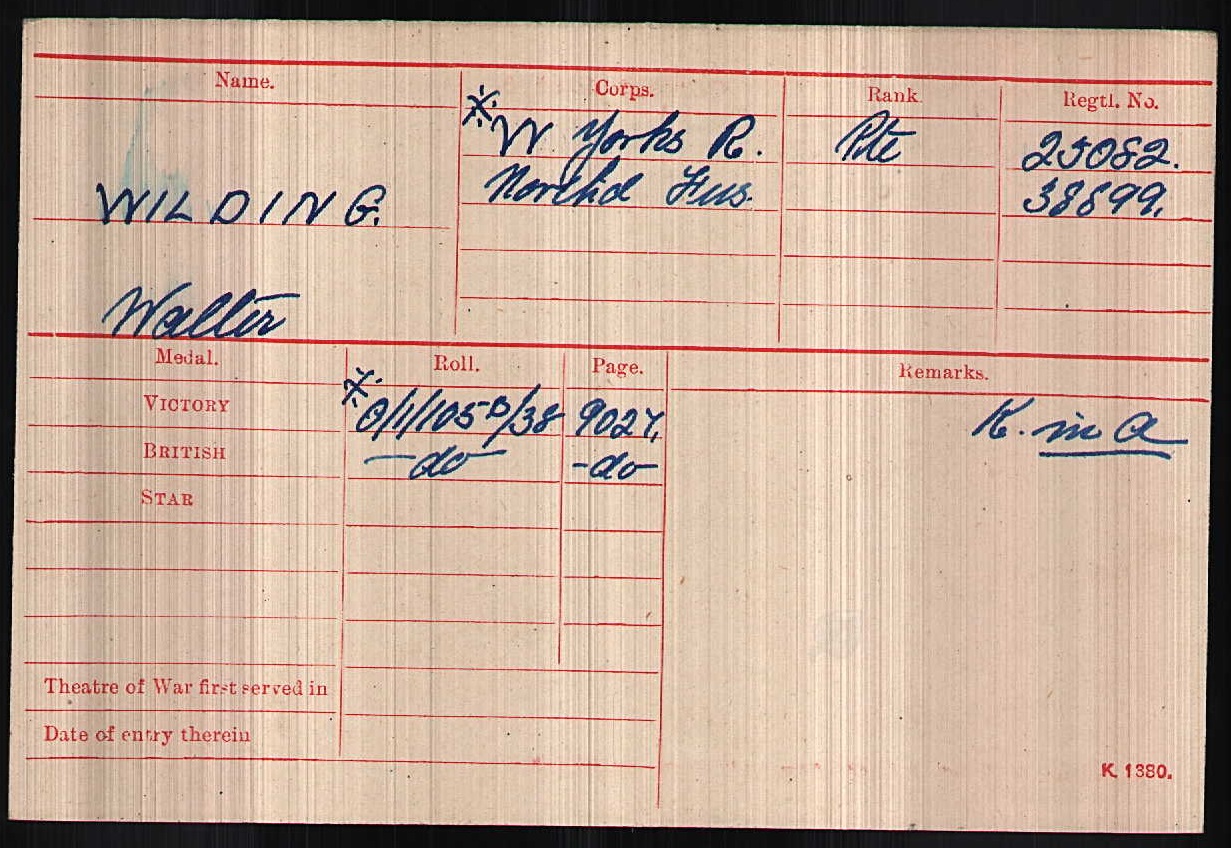 Name. Corps. Rank. Regtl. No.
※ W Yorks R. Pte 25082.
WILDING. Northd Fus. 38899.
Walter
Medal. Roll. Page. Remarks.
VICTORY ※ O/1/105B/38 9027. K. in A
BRITISH -do- -do-
STAR
Theatre of War first served in
Date of entry therein
K. 1380.